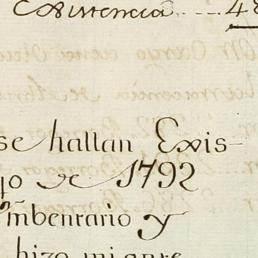 Existencia .... 48
se hallan Exis-
yo de 1792
Ymbentario y
hizo mi ante